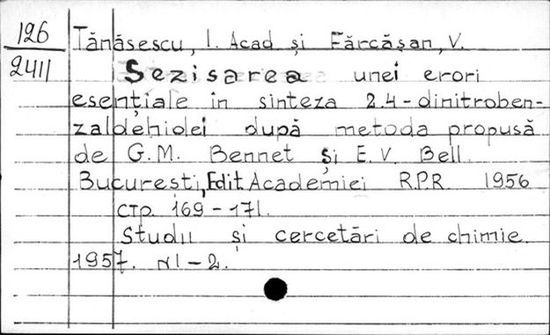 126
2411
Tănăsescu, I. Acad și Fărcășan, V.
Sezisarea unei erori
esențiale in sinteza 2.4-dinitroben-
zaldehidei după metoda propusă
de G.M. Bennet și E.V. Bell.
București, Edit Academiei R.P.R. 1956
стр. 169-171.
Studii și cercetări de chimie.
1957. N1-2.